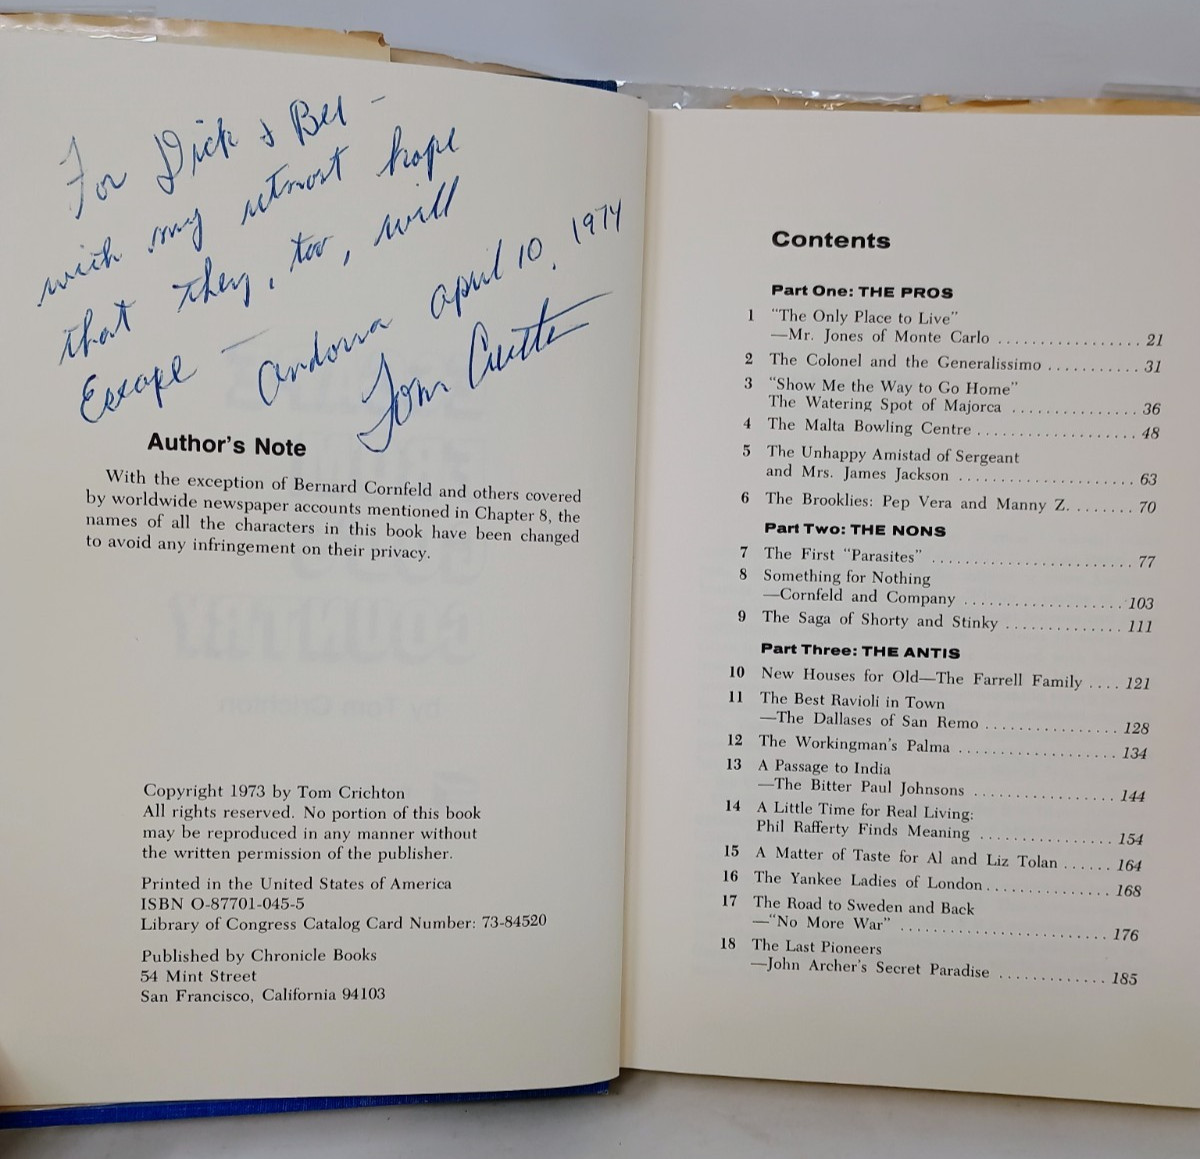 For Dick & Bel -
with my utmost hope
that they, too, will
Escape — Andorra April 10, 1974
Tom Crichton
Author's Note
With the exception of Bernard Cornfeld and others covered
by worldwide newspaper accounts mentioned in Chapter 8, the
names of all the characters in this book have been changed
to avoid any infringement on their privacy.
Copyright 1973 by Tom Crichton
All rights reserved. No portion of this book
may be reproduced in any manner without
the written permission of the publisher.
Printed in the United States of America
ISBN O-87701-045-5
Library of Congress Catalog Card Number: 73-84520
Published by Chronicle Books
54 Mint Street
San Francisco, California 94103
Contents
Part One: THE PROS
1 "The Only Place to Live"
—Mr. Jones of Monte Carlo ................. 21
2 The Colonel and the Generalissimo ........... 31
3 "Show Me the Way to Go Home"
The Watering Spot of Majorca ............... 36
4 The Malta Bowling Centre .................... 48
5 The Unhappy Amistad of Sergeant
and Mrs. James Jackson ...................... 63
6 The Brooklies: Pep Vera and Manny Z. ....... 70
Part Two: THE NONS
7 The First "Parasites" ......................... 77
8 Something for Nothing
—Cornfeld and Company .................... 103
9 The Saga of Shorty and Stinky .............. 111
Part Three: THE ANTIS
10 New Houses for Old—The Farrell Family .... 121
11 The Best Ravioli in Town
—The Dallases of San Remo ................ 128
12 The Workingman's Palma ................... 134
13 A Passage to India
—The Bitter Paul Johnsons ................. 144
14 A Little Time for Real Living:
Phil Rafferty Finds Meaning ................ 154
15 A Matter of Taste for Al and Liz Tolan ...... 164
16 The Yankee Ladies of London ............... 168
17 The Road to Sweden and Back
—"No More War" .......................... 176
18 The Last Pioneers
—John Archer's Secret Paradise ............ 185